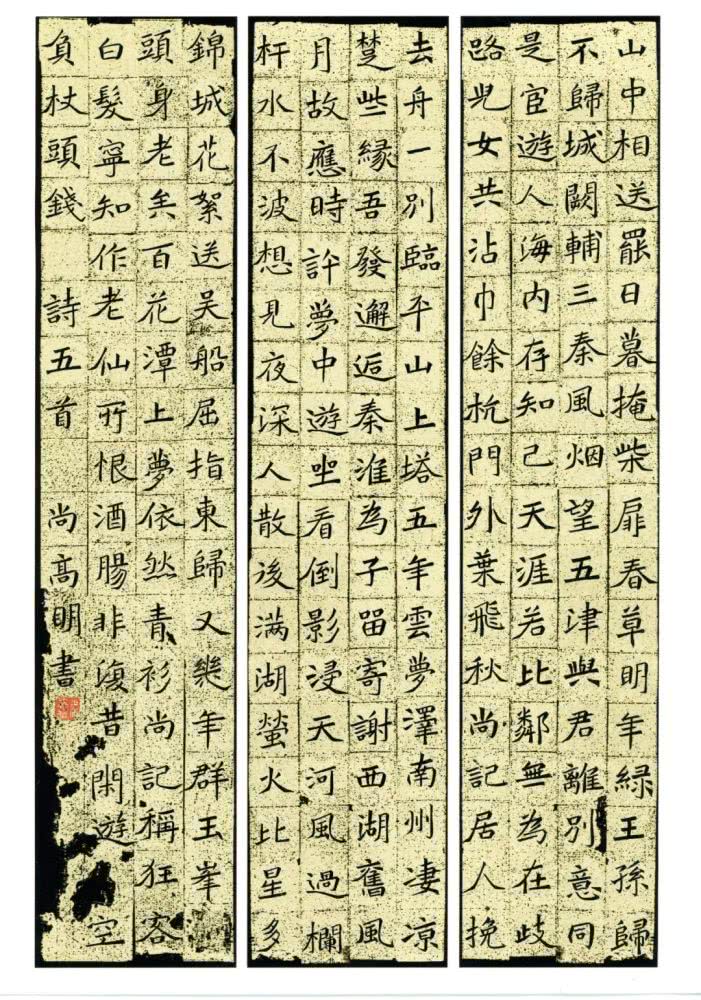 山中相送罷日暮掩柴扉春草明年緑王孫歸
不歸城闕輔三秦風烟望五津與君離別意同
是宦遊人海内存知己天涯若比鄰無為在歧
路兒女共沾巾餘杭門外葉飛秋尚記居人挽
去舟一別臨平山上塔五年雲夢澤南州凄凉
楚些縁吾發邂逅秦淮為子留寄謝西湖舊風
月故應時許夢中遊坐看倒影浸天河風過欄
杆水不波想見夜深人散後满湖螢火比星多
錦城花絮送吴船屈指東歸又幾年群玉峯
頭身老矣百花潭上夢依然青衫尚記稱狂客
白髮寧知作老仙所恨酒腸非復昔閑遊空
負杖頭錢 詩五首 尚高明書